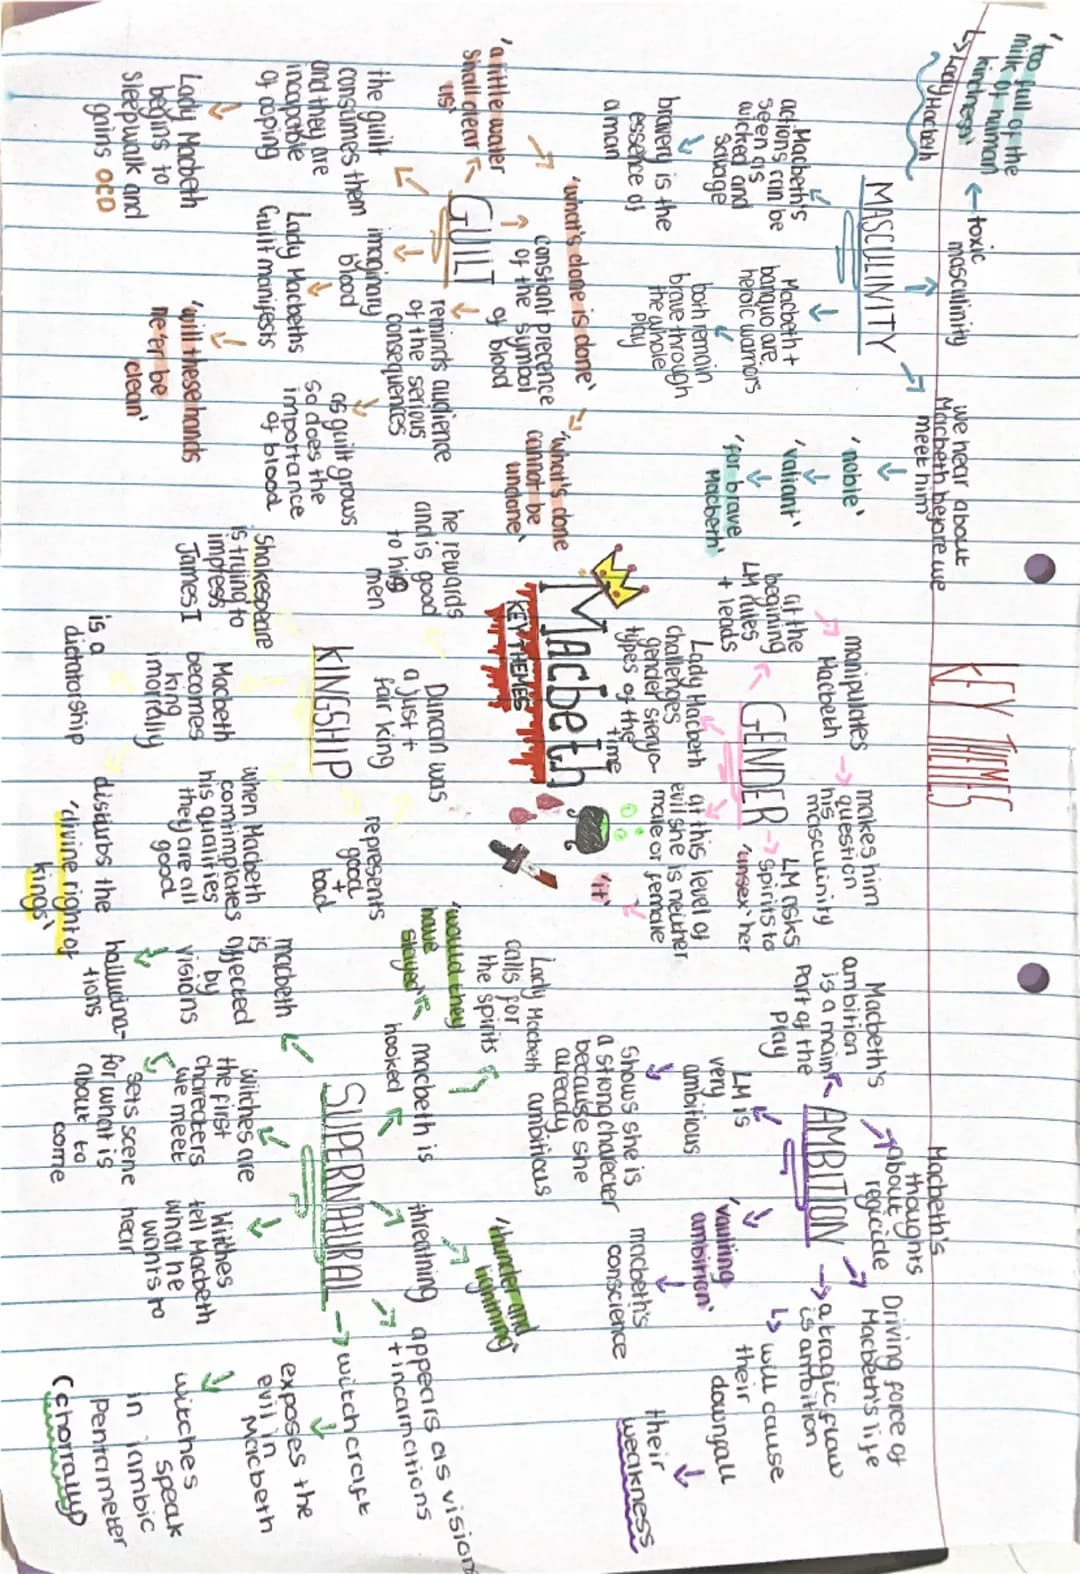 KEY THEMES
Macbeth
KEY THEMES
'too full of the
milk of human
kindness'
↳ Lady Macbeth
← toxic
masculinity
MASCULINITY
Macbeth's
actions can be
seen as
wicked and
savage
bravery is the
essence of
a man
Macbeth +
banquo are
heroic warriors
both remain
brave through
the whole
play
we hear about
Macbeth before we
meet him
'noble'
'valiant'
'for brave
Macbeth'
GENDER
manipulates
Macbeth
makes him
question
his
masculinity
at the
begining
LM rules
+ leads
Lady Macbeth
challenges
gender steryo-
types of the
time
LM asks
spirits to
'unsex' her
at this level of
evil she is neither
male or female
'it'
AMBITION
Macbeth's
ambition
is a main
part of the
play
Macbeth's
thoughts
about
regicide
Driving force of
Macbeth's life
a tragic flaw
is ambition
↳ will cause
their
downfall
their
weakness
LM is
very
ambitious
Shows she is
a strong charecter
because she
already
ambitious
'vaulting
ambition'
macbeth's
conscience
GUILT
'a little water
shall clear
us'
'what's done is done'
'what's done
cannot be
undone'
constant precence
of the symbol
of blood
reminds audience
of the serious
consequences
as guilt grows
so does the
importance
of blood
the guilt
consumes them
and they are
incapable
of coping
Lady Macbeth
begins to
sleepwalk and
gains OCD
imaginary
blood
Lady Macbeths
Guilt manifests
'will these hands
ne'er be
clean'
KINGSHIP
he rewards
and is good
to his
men
Duncan was
a just +
fair king
Shakespeare
is trying to
impress
James I
Macbeth
becomes
king
imorrally
is a
dictatorship
disturbs the
'divine right of
kings'
when Macbeth
comtimplates
his qualities
they are all
good
represents
good
+
bad
SUPERNATURAL
Lady Macbeth
calls for
the spirits
'would they
have
stayed'
macbeth is
hooked
macbeth
is
affected
by
visions
hallucina-
tions
Witches are
the first
charecters
we meet
sets scene
for what is
about to
come
Witches
tell Macbeth
what he
wants to
hear
threatning
'thunder and
lightning'
appears as visions
+ incarnations
witchcraft
exposes the
evil in
Macbeth
witches
speak
in iambic
pentameter
(chorrally)